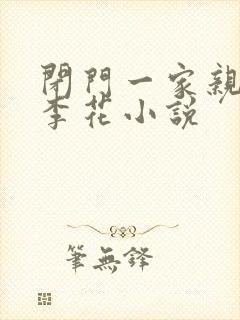 閉門一家親
李花小說
筆無鋒